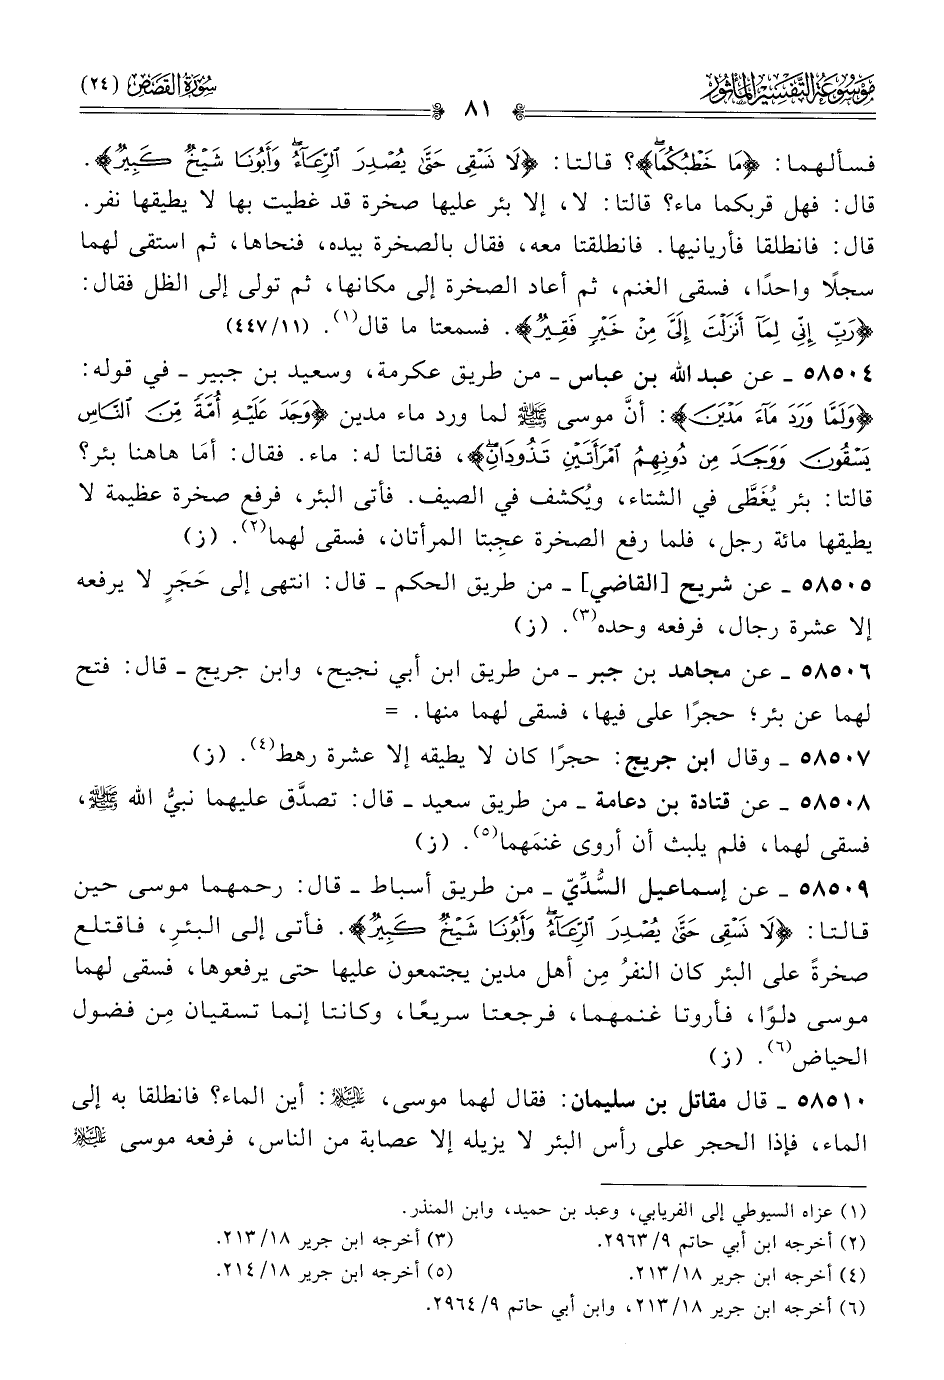 موسوعة التفسير المأثور
٨١
سورة القصص (٢٤)
فسألهما: ﴿مَا خَطْبُكُمَاۖ﴾؟ قالتا: ﴿لَا نَسْقِى حَتَّىٰ يُصْدِرَ ٱلرِّعَآءُۖ وَأَبُونَا شَيْخٌ كَبِيرٌ﴾.
قال: فهل قربكما ماء؟ قالتا: لا، إلا بئر عليها صخرة قد غطيت بها لا يطيقها نفر.
قال: فانطلقا فأريانيها. فانطلقتا معه، فقال بالصخرة بيده، فنحاها، ثم استقى لهما
سجلًا واحدًا، فسقى الغنم، ثم أعاد الصخرة إلى مكانها، ثم تولى إلى الظل فقال:
﴿رَبِّ إِنِّى لِمَآ أَنزَلْتَ إِلَىَّ مِنْ خَيْرٍ فَقِيرٌ﴾. فسمعتا ما قال(١). (٤٤٧/١١)
٥٨٥٠٤ ـ عن عبد الله بن عباس ـ من طريق عكرمة، وسعيد بن جبير ـ في قوله:
﴿وَلَمَّا وَرَدَ مَآءَ مَدْيَنَ﴾: أنَّ موسى ﷺ لما ورد ماء مدين ﴿وَجَدَ عَلَيْهِ أُمَّةً مِّنَ ٱلنَّاسِ
يَسْقُونَ وَوَجَدَ مِن دُونِهِمُ ٱمْرَأَتَيْنِ تَذُودَانِۖ﴾، فقالتا له: ماء. فقال: أمَا هاهنا بئر؟
قالتا: بئر يُغَطَّى في الشتاء، ويُكشف في الصيف. فأتى البئر، فرفع صخرة عظيمة لا
يطيقها مائة رجل، فلما رفع الصخرة عجِبتا المرأتان، فسقى لهما(٢). (ز)
٥٨٥٠٥ ـ عن شريح [القاضي] ـ من طريق الحكم ـ قال: انتهى إلى حَجَرٍ لا يرفعه
إلا عشرة رجال، فرفعه وحده(٣). (ز)
٥٨٥٠٦ ـ عن مجاهد بن جبر ـ من طريق ابن أبي نجيح، وابن جريج ـ قال: فتح
لهما عن بئر؛ حجرًا على فيها، فسقى لهما منها. =
٥٨٥٠٧ ـ وقال ابن جريج: حجرًا كان لا يطيقه إلا عشرة رهط(٤). (ز)
٥٨٥٠٨ ـ عن قتادة بن دعامة ـ من طريق سعيد ـ قال: تصدَّق عليهما نبيُّ الله ﷺ،
فسقى لهما، فلم يلبث أن أروى غنمَهما(٥). (ز)
٥٨٥٠٩ ـ عن إسماعيل السُّدِّيّ ـ من طريق أسباط ـ قال: رحمهما موسى حين
قالتا: ﴿لَا نَسْقِى حَتَّىٰ يُصْدِرَ ٱلرِّعَآءُۖ وَأَبُونَا شَيْخٌ كَبِيرٌ﴾. فأتى إلى البئرِ، فاقتلع
صخرةً على البئر كان النفرُ مِن أهل مدين يجتمعون عليها حتى يرفعوها، فسقى لهما
موسى دلوًا، فأروتا غنمهما، فرجعتا سريعًا، وكانتا إنما تسقيان مِن فضول
الحياض(٦). (ز)
٥٨٥١٠ ـ قال مقاتل بن سليمان: فقال لهما موسى، عليه السلام: أين الماء؟ فانطلقا به إلى
الماء، فإذا الحجر على رأس البئر لا يزيله إلا عصابة من الناس، فرفعه موسى عليه السلام
(١) عزاه السيوطي إلى الفريابي، وعبد بن حميد، وابن المنذر.
(٢) أخرجه ابن أبي حاتم ٢٩٦٣/٩. (٣) أخرجه ابن جرير ٢١٣/١٨.
(٤) أخرجه ابن جرير ٢١٣/١٨. (٥) أخرجه ابن جرير ٢١٤/١٨.
(٦) أخرجه ابن جرير ٢١٣/١٨، وابن أبي حاتم ٢٩٦٤/٩.